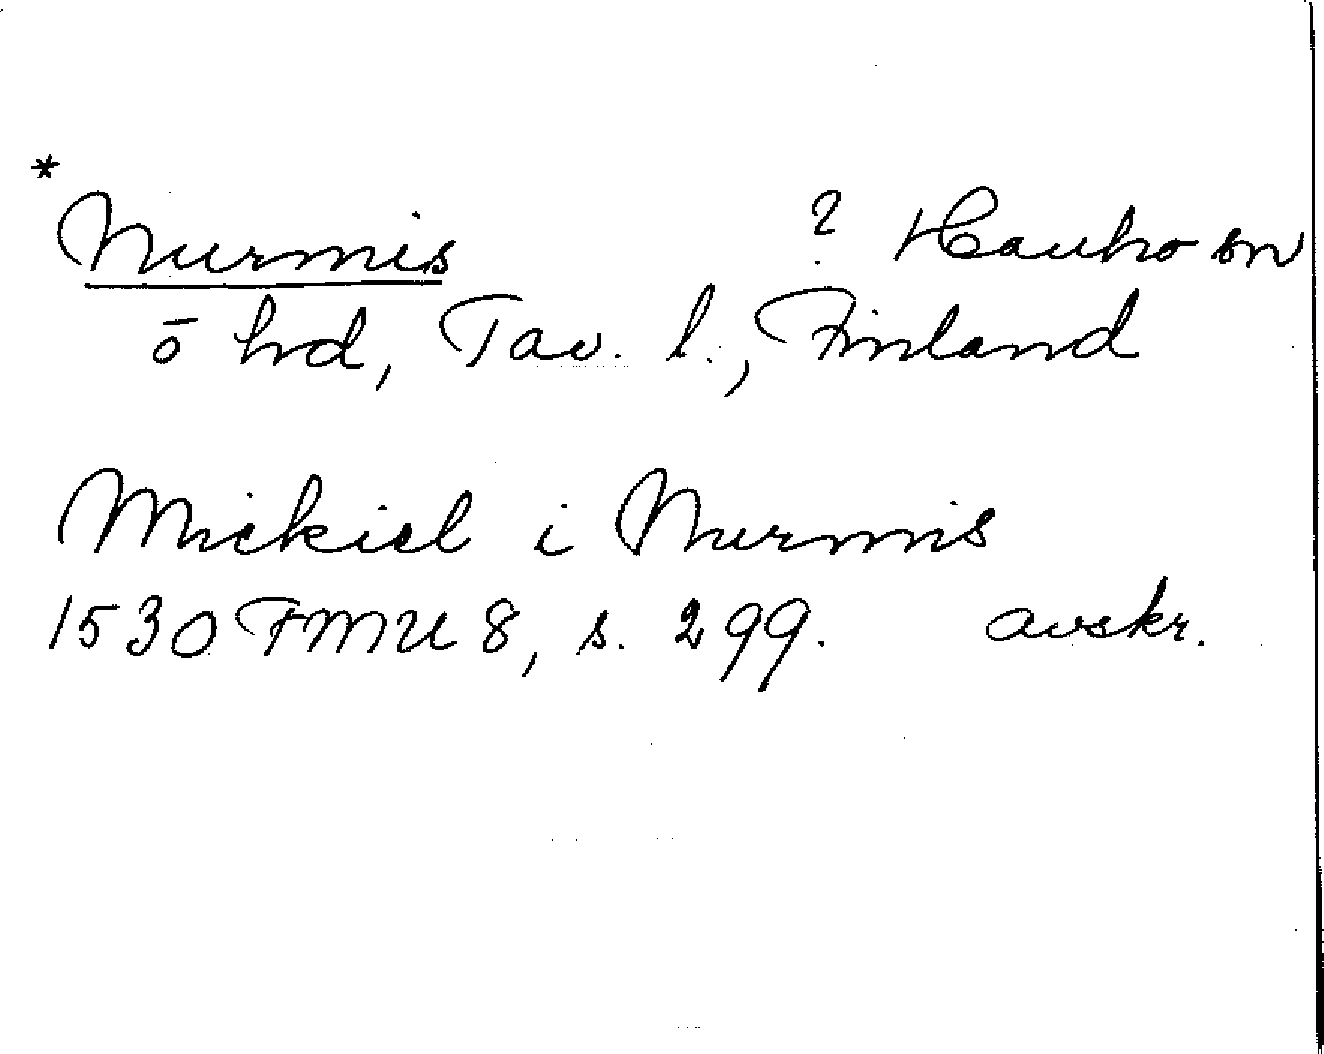 * Nurmis ? Hauho sn
ö hrd, Tav. l., Finland
Mickiel i Nurmis
1530 FMU 8, s. 299. avskr.